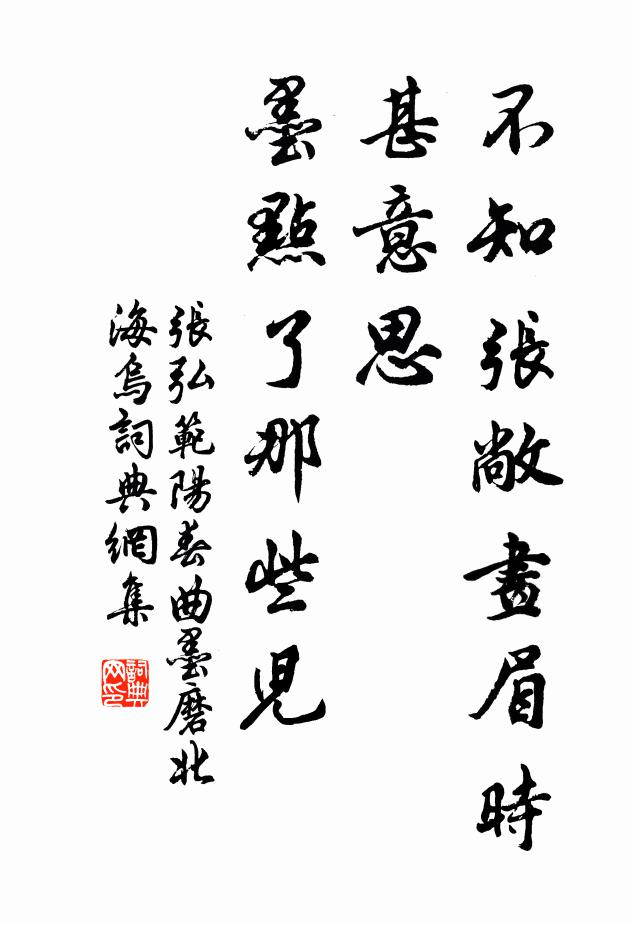 不知張敞畫眉時
甚意思
墨點了那些兒
張弘範陽春曲墨磨北
海烏詞典網集
詞典
网印